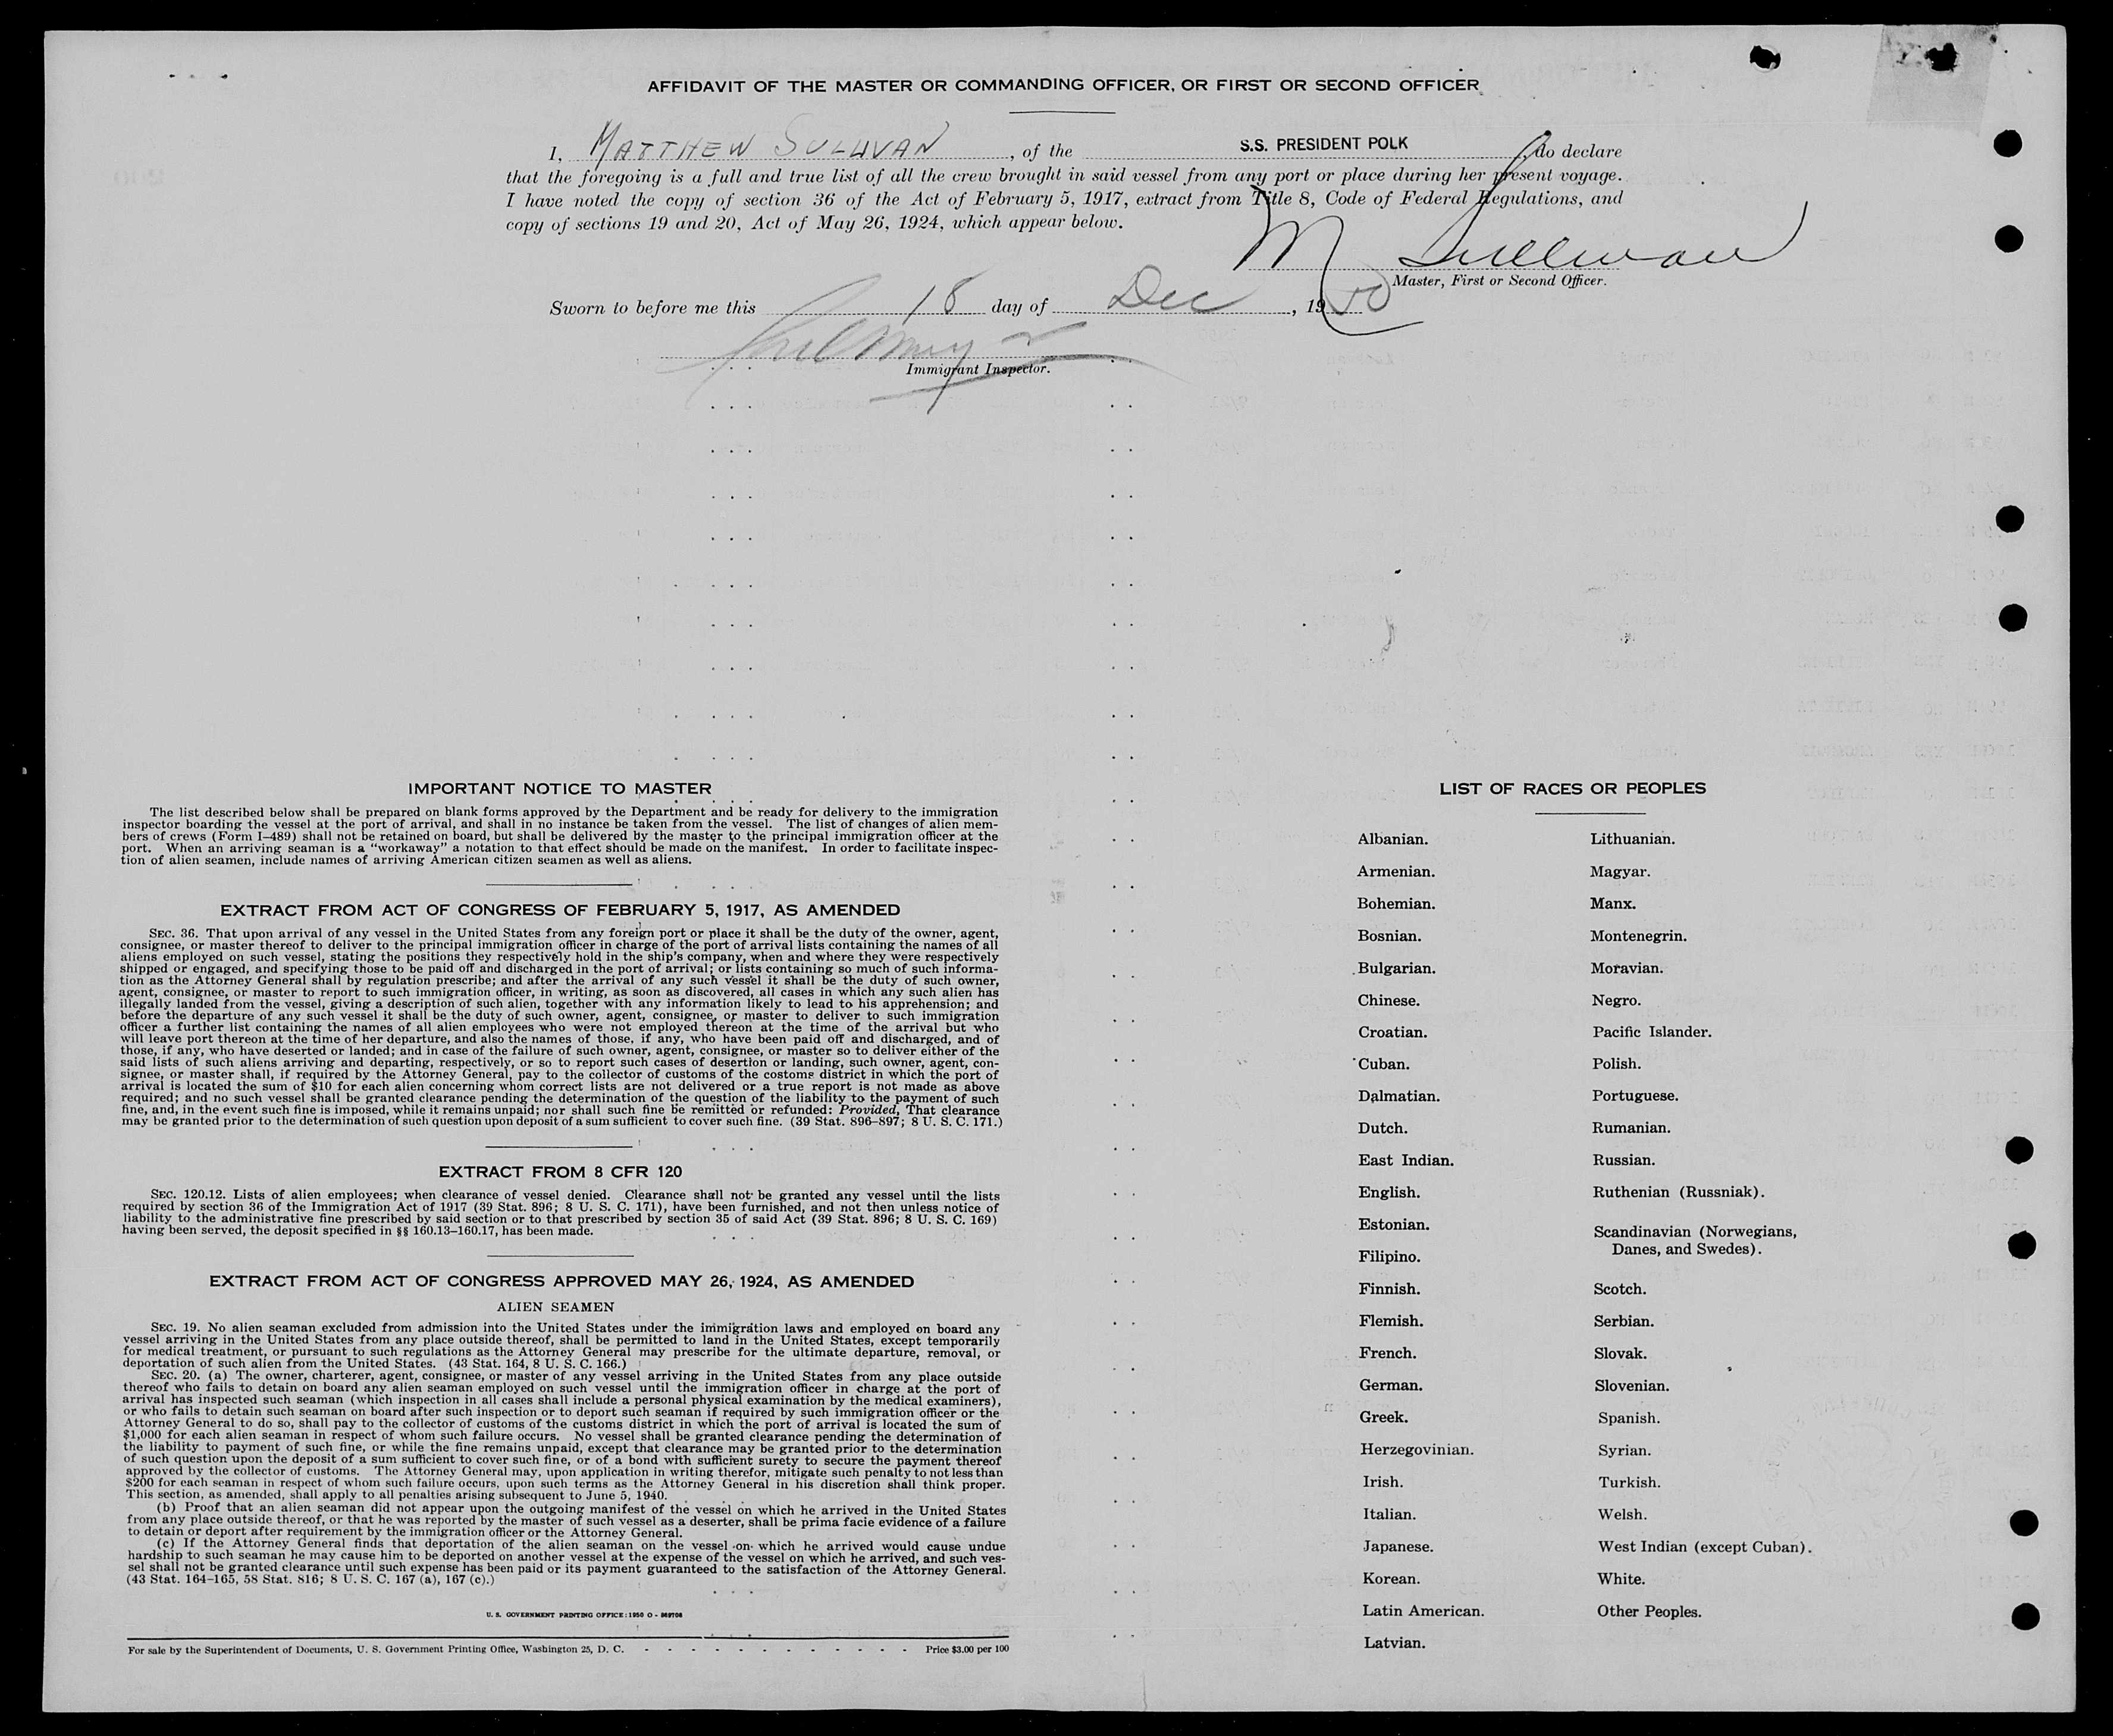 AFFIDAVIT OF THE MASTER OR COMMANDING OFFICER, OR FIRST OR SECOND OFFICER
I, MATTHEW SULLIVAN, of the S.S. PRESIDENT POLK, do declare
that the foregoing is a full and true list of all the crew brought in said vessel from any port or place during her present voyage.
I have noted the copy of section 36 of the Act of February 5, 1917, extract from Title 8, Code of Federal Regulations, and
copy of sections 19 and 20, Act of May 26, 1924, which appear below.
M Sullivan
Master, First or Second Officer.
Sworn to before me this 18 day of Dec, 1950
Immigrant Inspector.
IMPORTANT NOTICE TO MASTER
The list described below shall be prepared on blank forms approved by the Department and be ready for delivery to the immigration
inspector boarding the vessel at the port of arrival, and shall in no instance be taken from the vessel. The list of changes of alien mem-
bers of crews (Form I–489) shall not be retained on board, but shall be delivered by the master to the principal immigration officer at the
port. When an arriving seaman is a "workaway" a notation to that effect should be made on the manifest. In order to facilitate inspec-
tion of alien seamen, include names of arriving American citizen seamen as well as aliens.
EXTRACT FROM ACT OF CONGRESS OF FEBRUARY 5, 1917, AS AMENDED
SEC. 36. That upon arrival of any vessel in the United States from any foreign port or place it shall be the duty of the owner, agent,
consignee, or master thereof to deliver to the principal immigration officer in charge of the port of arrival lists containing the names of all
aliens employed on such vessel, stating the positions they respectively hold in the ship's company, when and where they were respectively
shipped or engaged, and specifying those to be paid off and discharged in the port of arrival; or lists containing so much of such informa-
tion as the Attorney General shall by regulation prescribe; and after the arrival of any such vessel it shall be the duty of such owner,
agent, consignee, or master to report to such immigration officer, in writing, as soon as discovered, all cases in which any such alien has
illegally landed from the vessel, giving a description of such alien, together with any information likely to lead to his apprehension; and
before the departure of any such vessel it shall be the duty of such owner, agent, consignee, or master to deliver to such immigration
officer a further list containing the names of all alien employees who were not employed thereon at the time of the arrival but who
will leave port thereon at the time of her departure, and also the names of those, if any, who have been paid off and discharged, and of
those, if any, who have deserted or landed; and in case of the failure of such owner, agent, consignee, or master so to deliver either of the
said lists of such aliens arriving and departing, respectively, or so to report such cases of desertion or landing, such owner, agent, con-
signee, or master shall, if required by the Attorney General, pay to the collector of customs of the costoms district in which the port of
arrival is located the sum of $10 for each alien concerning whom correct lists are not delivered or a true report is not made as above
required; and no such vessel shall be granted clearance pending the determination of the question of the liability to the payment of such
fine, and, in the event such fine is imposed, while it remains unpaid; nor shall such fine be remitted or refunded: Provided, That clearance
may be granted prior to the determination of such question upon deposit of a sum sufficient to cover such fine. (39 Stat. 896–897; 8 U. S. C. 171.)
EXTRACT FROM 8 CFR 120
SEC. 120.12. Lists of alien employees; when clearance of vessel denied. Clearance shall not be granted any vessel until the lists
required by section 36 of the Immigration Act of 1917 (39 Stat. 896; 8 U. S. C. 171), have been furnished, and not then unless notice of
liability to the administrative fine prescribed by said section or to that prescribed by section 35 of said Act (39 Stat. 896; 8 U. S. C. 169)
having been served, the deposit specified in §§ 160.13–160.17, has been made.
EXTRACT FROM ACT OF CONGRESS APPROVED MAY 26, 1924, AS AMENDED
ALIEN SEAMEN
SEC. 19. No alien seaman excluded from admission into the United States under the immigration laws and employed on board any
vessel arriving in the United States from any place outside thereof, shall be permitted to land in the United States, except temporarily
for medical treatment, or pursuant to such regulations as the Attorney General may prescribe for the ultimate departure, removal, or
deportation of such alien from the United States. (43 Stat. 164, 8 U. S. C. 166.)
SEC. 20. (a) The owner, charterer, agent, consignee, or master of any vessel arriving in the United States from any place outside
thereof who fails to detain on board any alien seaman employed on such vessel until the immigration officer in charge at the port of
arrival has inspected such seaman (which inspection in all cases shall include a personal physical examination by the medical examiners),
or who fails to detain such seaman on board after such inspection or to deport such seaman if required by such immigration officer or the
Attorney General to do so, shall pay to the collector of customs of the customs district in which the port of arrival is located the sum of
$1,000 for each alien seaman in respect of whom such failure occurs. No vessel shall be granted clearance pending the determination of
the liability to payment of such fine, or while the fine remains unpaid, except that clearance may be granted prior to the determination
of such question upon the deposit of a sum sufficient to cover such fine, or of a bond with sufficient surety to secure the payment thereof
approved by the collector of customs. The Attorney General may, upon application in writing therefor, mitigate such penalty to not less than
$200 for each seaman in respect of whom such failure occurs, upon such terms as the Attorney General in his discretion shall think proper.
This section, as amended, shall apply to all penalties arising subsequent to June 5, 1940.
(b) Proof that an alien seaman did not appear upon the outgoing manifest of the vessel on which he arrived in the United States
from any place outside thereof, or that he was reported by the master of such vessel as a deserter, shall be prima facie evidence of a failure
to detain or deport after requirement by the immigration officer or the Attorney General.
(c) If the Attorney General finds that deportation of the alien seaman on the vessel on which he arrived would cause undue
hardship to such seaman he may cause him to be deported on another vessel at the expense of the vessel on which he arrived, and such ves-
sel shall not be granted clearance until such expense has been paid or its payment guaranteed to the satisfaction of the Attorney General.
(43 Stat. 164–165, 58 Stat. 816; 8 U. S. C. 167 (a), 167 (c).)
U. S. GOVERNMENT PRINTING OFFICE: 1950 O -
For sale by the Superintendent of Documents, U. S. Government Printing Office, Washington 25, D. C. - - - - - - - - - - - - Price $3.00 per 100
LIST OF RACES OR PEOPLES
Albanian.
Armenian.
Bohemian.
Bosnian.
Bulgarian.
Chinese.
Croatian.
Cuban.
Dalmatian.
Dutch.
East Indian.
English.
Estonian.
Filipino.
Finnish.
Flemish.
French.
German.
Greek.
Herzegovinian.
Irish.
Italian.
Japanese.
Korean.
Latin American.
Latvian.
Lithuanian.
Magyar.
Manx.
Montenegrin.
Moravian.
Negro.
Pacific Islander.
Polish.
Portuguese.
Rumanian.
Russian.
Ruthenian (Russniak).
Scandinavian (Norwegians,
Danes, and Swedes).
Scotch.
Serbian.
Slovak.
Slovenian.
Spanish.
Syrian.
Turkish.
Welsh.
West Indian (except Cuban).
White.
Other Peoples.